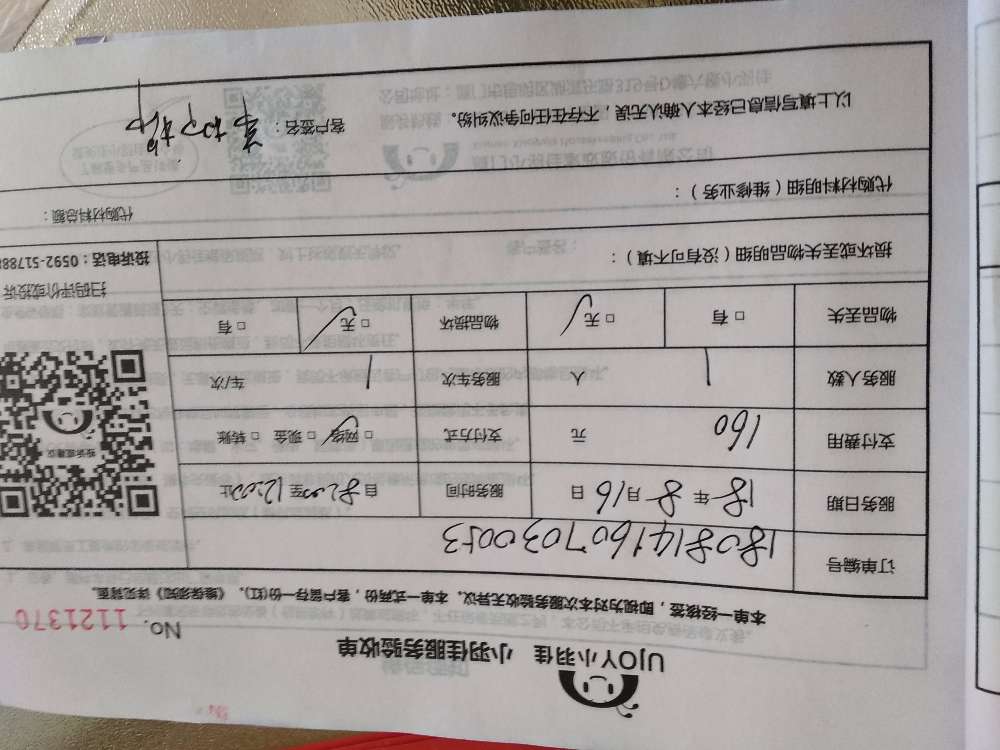 UJOY小羽佳 小羽佳服务验收单
No. 1121370
本单一经核签，即视为对本次服务验收无异议。本单一式两份，客户留存一份(红)。《维保须知》详见背面。
订单编号 1808141607030053
服务日期 18年8月16日 服务时间 自8:00至12:00止
支付费用 160 元 支付方式 □网络 □现金 □转账
服务人数 1 人 服务车次 1 车/次
物品丢失 □有 □无 物品损坏 □无 □有
投诉或建议
扫码评价或投诉
投诉电话：0592-51788
损坏或丢失物品明细（没有可不填）：
代购材料明细（维修业务）：
代购材料总额：
以上填写信息已经本人确认无误，不存在任何争议纠纷。
客户签名：